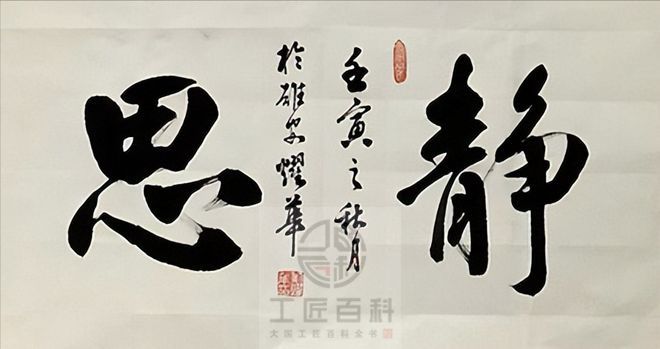 静
壬寅之秋月
於雄安耀华
思
工匠百科
大国工匠百科全书